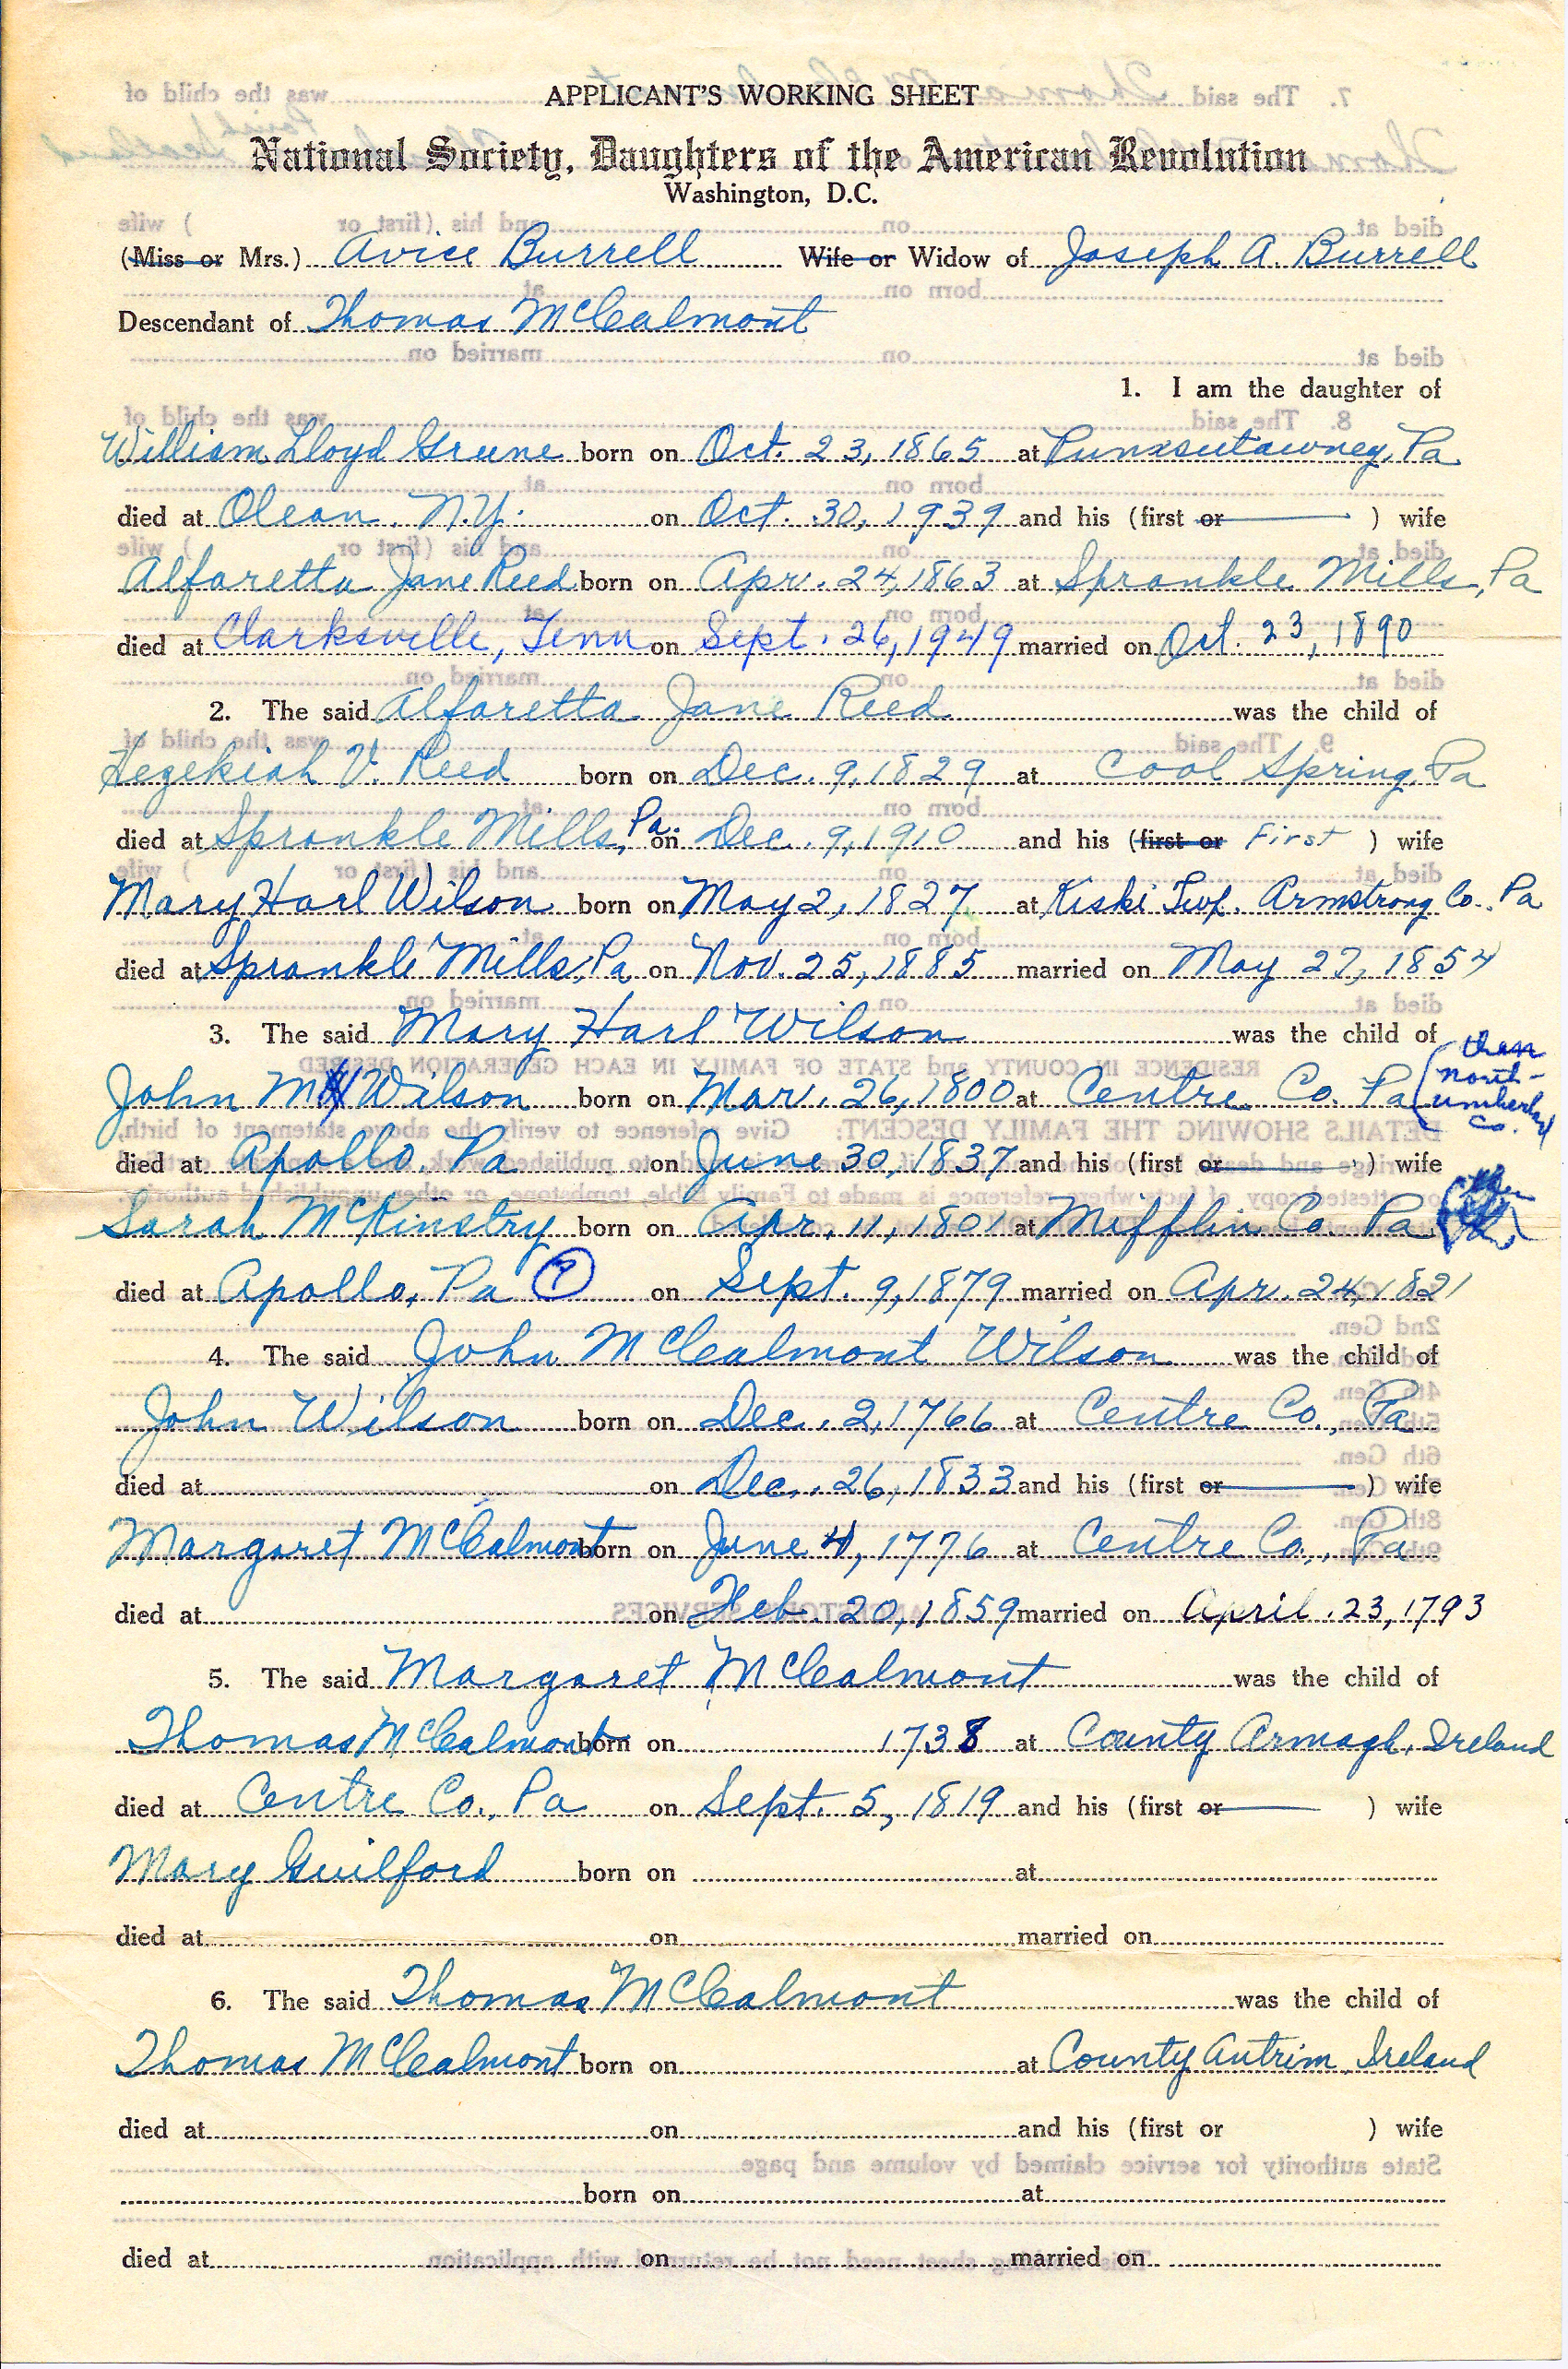 APPLICANT'S WORKING SHEET
National Society, Daughters of the American Revolution
Washington, D.C.
(Miss or Mrs.) Avice Burrell Wife or Widow of Joseph A. Burrell
Descendant of Thomas McCalmont
1. I am the daughter of
William Lloyd Greene born on Oct. 23, 1865 at Punxsutawney, Pa
died at Olean, N.Y. on Oct. 30, 1939 and his (first or ) wife
Alfaretta Jane Reed born on Apr. 24, 1863 at Sprankle Mills, Pa
died at Clarksville, Tenn on Sept. 26, 1949 married on Oct. 23, 1890
2. The said Alfaretta Jane Reed was the child of
Hezekiah V. Reed born on Dec. 9, 1829 at Cool Spring, Pa
died at Sprankle Mills, Pa. on Dec. 9, 1910 and his (first or First ) wife
Mary Harl Wilson born on May 2, 1827 at Kiski Twp. Armstrong Co. Pa
died at Sprankle Mills, Pa on Nov. 25, 1885 married on May 27, 1854
3. The said Mary Harl Wilson was the child of
John M Wilson born on Mar. 26, 1800 at Centre Co. Pa (then North-umberland Co.
died at Apollo, Pa on June 30, 1837 and his (first or ) wife
Sarah McKinstry born on Apr. 11, 1801 at Mifflin Co. Pa
died at Apollo, Pa (?) on Sept. 9, 1879 married on Apr. 24, 1821
4. The said John McCalmont Wilson was the child of
John Wilson born on Dec. 2, 1766 at Centre Co., Pa
died at on Dec. 26, 1833 and his (first or ) wife
Margaret McCalmont born on June 4, 1776 at Centre Co., Pa
died at on Feb. 20, 1859 married on April 23, 1793
5. The said Margaret McCalmont was the child of
Thomas McCalmont born on 1738 at County Armagh, Ireland
died at Centre Co., Pa on Sept. 5, 1819 and his (first or ) wife
Mary Guilford born on at
died at on married on
6. The said Thomas McCalmont was the child of
Thomas McCalmont born on at County Antrim, Ireland
died at on and his (first or ) wife
born on at
died at on married on